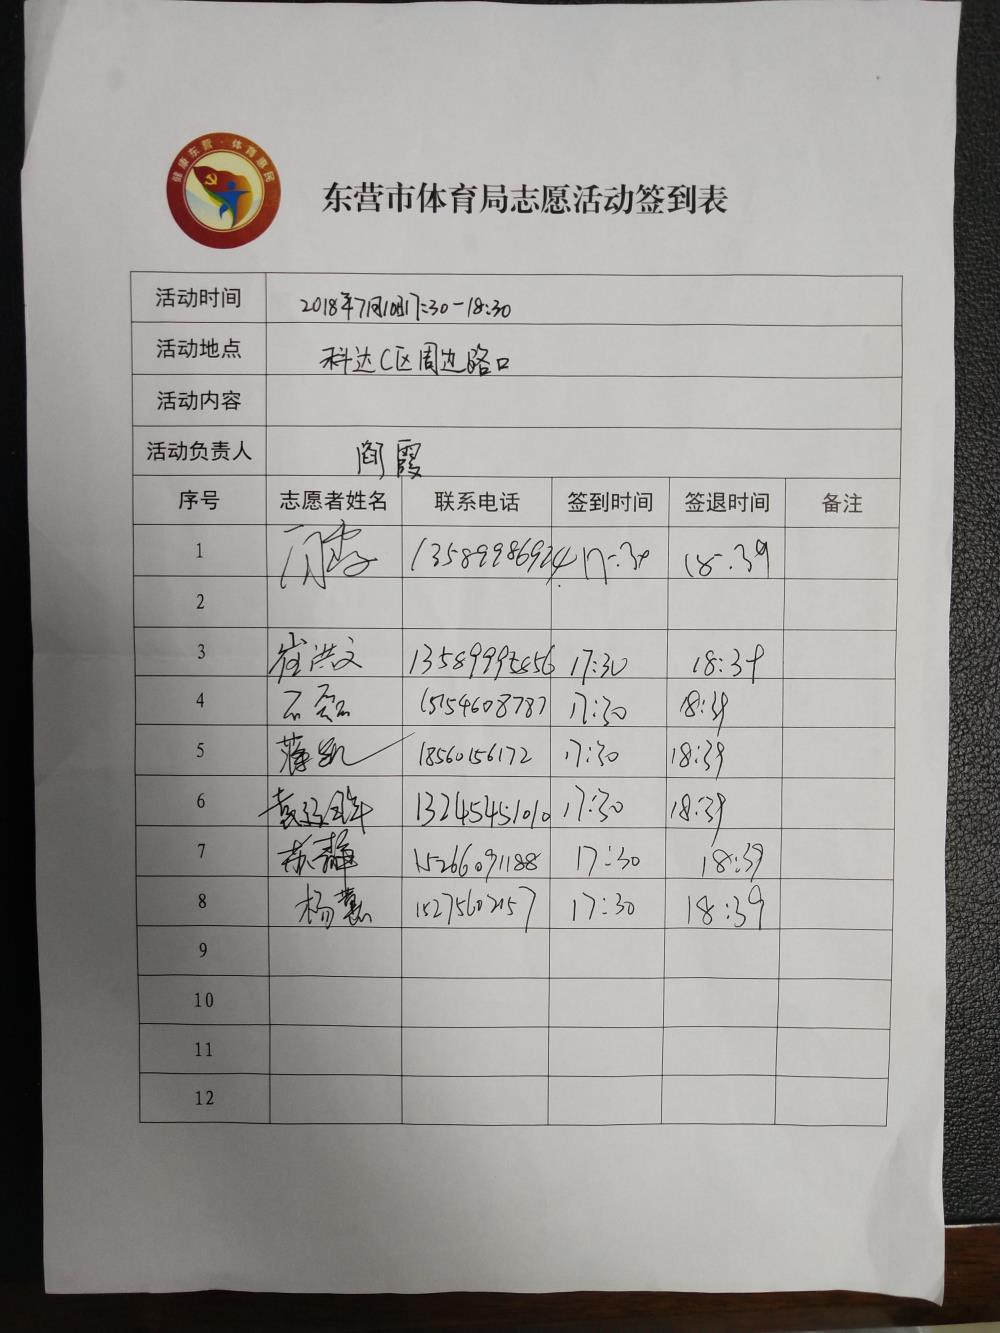 健康东营·体育惠民
东营市体育局志愿活动签到表
活动时间 2018年7月10日17:30-18:30
活动地点 科达C区周边路口
活动内容
活动负责人 阎霞
序号 志愿者姓名 联系电话 签到时间 签退时间 备注
1 13589986924 17:30 18:39
2
3 崔洪文 13589995856 17:30 18:39
4 石磊 15154608787 17:30 18:39
5 薛凯 18560156172 17:30 18:39
6 13245451010 17:30 18:39
7 苏静 15266091188 17:30 18:39
8 杨慧 15275602157 17:30 18:39
9
10
11
12